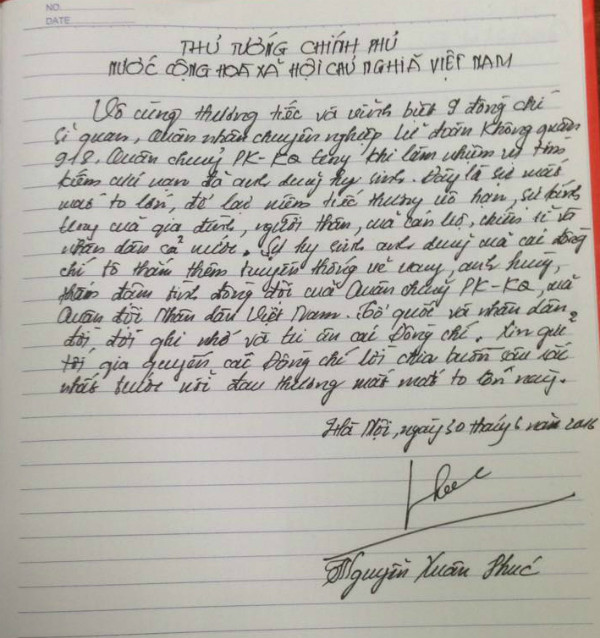 NO.
DATE
THỦ TƯỚNG CHÍNH PHỦ
NƯỚC CỘNG HOÀ XÃ HỘI CHỦ NGHĨA VIỆT NAM
Vô cùng thương tiếc và vĩnh biệt 9 đồng chí
sĩ quan, quân nhân chuyên nghiệp Lữ đoàn Không quân
918, Quân chủng PK-KQ trong khi làm nhiệm vụ tìm
kiếm cứu nạn đã anh dũng hy sinh. Đây là sự mất
mát to lớn, để lại niềm tiếc thương vô hạn, sự kính
trọng của gia đình, người thân, của cán bộ, chiến sĩ và
nhân dân cả nước. Sự hy sinh anh dũng của các đồng
chí tô thắm thêm truyền thống vẻ vang, anh hùng,
thắm đẫm tình đồng đội của Quân chủng PK-KQ, của
Quân đội Nhân dân Việt Nam. Tổ quốc và nhân dân
đời đời ghi nhớ và tri ân các Đồng chí. Xin gửi
tới gia quyến các Đồng chí lời chia buồn sâu sắc
nhất trước nỗi đau thương mất mát to lớn này.
Hà Nội, ngày 30 tháng 6 năm 2016
Phúc
Nguyễn Xuân Phúc